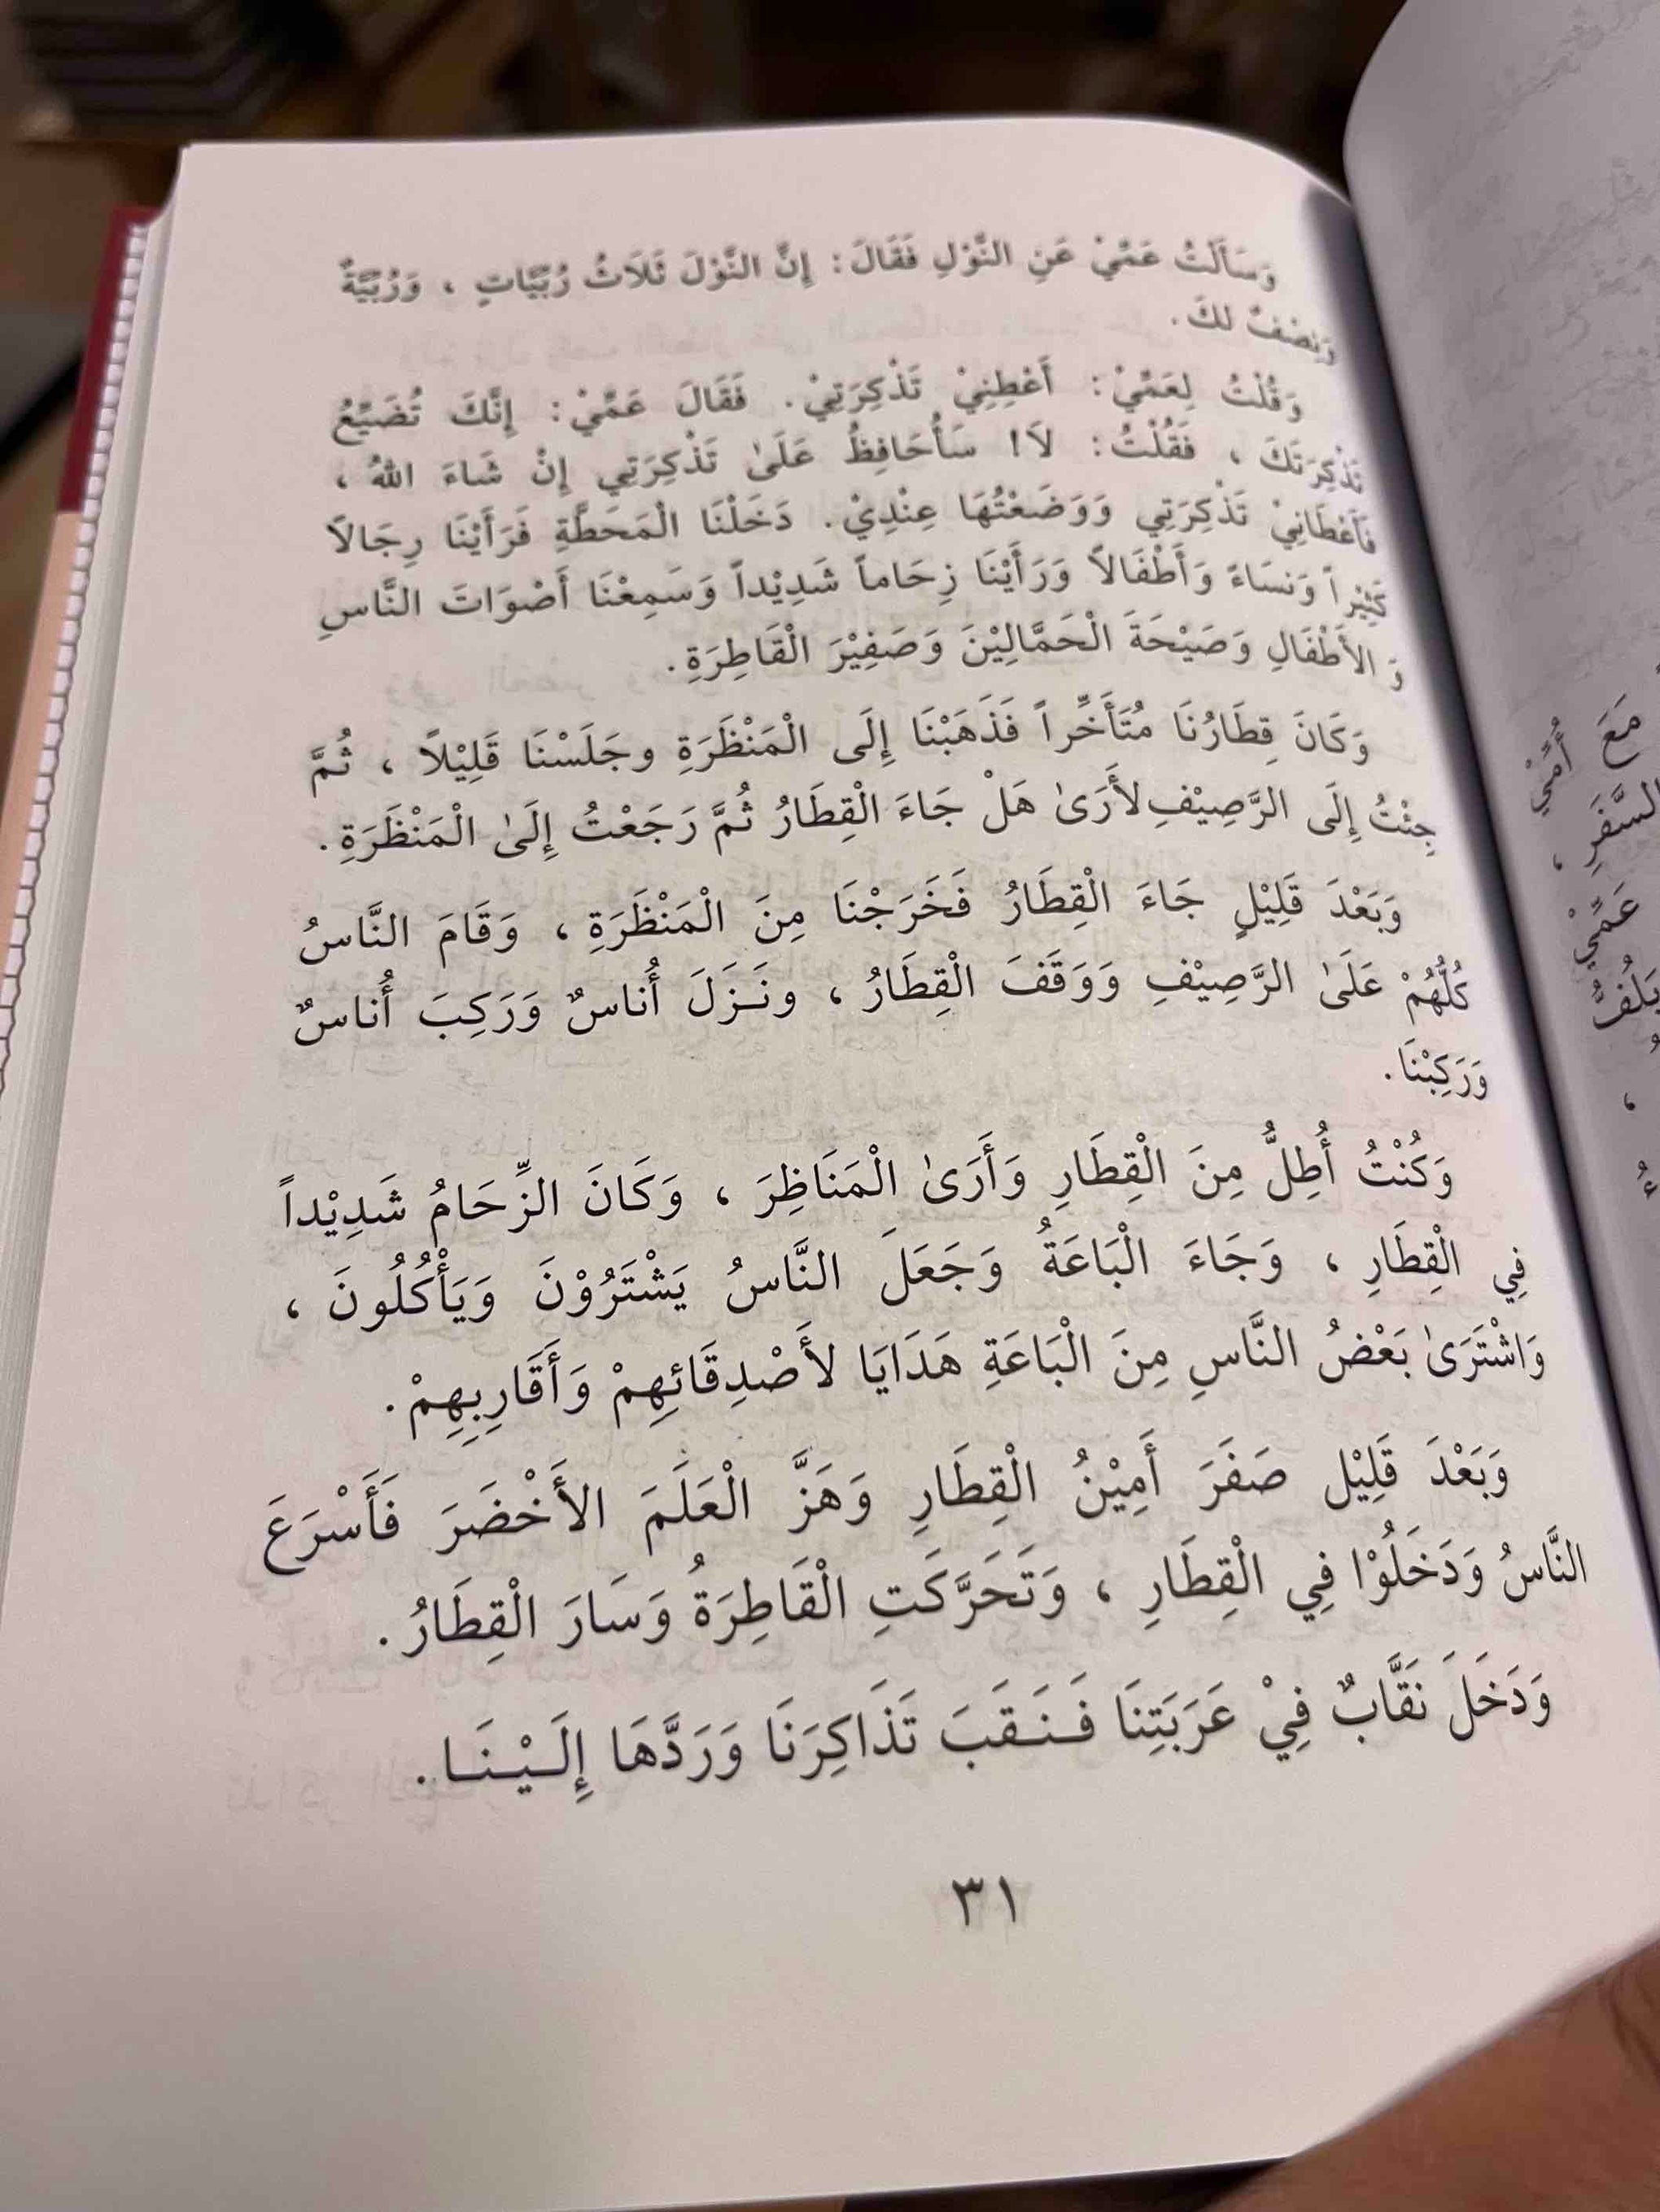 وَسَأَلْتُ عَمِّيْ عَنِ النَّوْلِ فَقَالَ: إِنَّ النَّوْلَ ثَلَاثُ رُبِّيَّاتٍ ، وَرُبِّيَّةٌ
وَنِصْفٌ لَكَ.
وَقُلْتُ لِعَمِّيْ: أَعْطِنِيْ تَذْكِرَتِيْ. فَقَالَ عَمِّيْ: إِنَّكَ تُضَيِّعُ
تَذْكِرَتَكَ ، فَقُلْتُ: لَا! سَأُحَافِظُ عَلَىٰ تَذْكِرَتِي إِنْ شَاءَ اللهُ ،
فَأَعْطَانِيْ تَذْكِرَتِي وَوَضَعْتُهَا عِنْدِيْ. دَخَلْنَا الْمَحَطَّةِ فَرَأَيْنَا رِجَالاً
كَثِيْراً وَنِسَاءً وَأَطْفَالاً وَرَأَيْنَا زِحَاماً شَدِيْداً وَسَمِعْنَا أَصْوَاتَ النَّاسِ
وَ الأَطْفَالِ وَصَيْحَةَ الْحَمَّالِيْنَ وَصَفِيْرَ الْقَاطِرَةِ.
وَكَانَ قِطَارُنَا مُتَأَخِّراً فَذَهَبْنَا إِلَى الْمَنْظَرَةِ وجَلَسْنَا قَلِيْلاً ، ثُمَّ
جِئْتُ إِلَى الرَّصِيْفِ لأَرَىٰ هَلْ جَاءَ الْقِطَارُ ثُمَّ رَجَعْتُ إِلَىٰ الْمَنْظَرَةِ.
وَبَعْدَ قَلِيْلٍ جَاءَ الْقِطَارُ فَخَرَجْنَا مِنَ الْمَنْظَرَةِ ، وَقَامَ النَّاسُ
كُلُّهُمْ عَلَىٰ الرَّصِيْفِ وَوَقَفَ الْقِطَارُ ، ونَـزَلَ أُناسٌ وَرَكِبَ أُناسٌ
وَرَكِبْنَا.
وَكُنْتُ أُطِلُّ مِنَ الْقِطَارِ وَأَرَىٰ الْمَنَاظِرَ ، وَكَانَ الزِّحَامُ شَدِيْداً
فِي الْقِطَارِ ، وَجَاءَ الْبَاعَةُ وَجَعَلَ النَّاسُ يَشْتَرُوْنَ وَيَأْكُلُونَ ،
وَاشْتَرَىٰ بَعْضُ النَّاسِ مِنَ الْبَاعَةِ هَدَايَا لأَصْدِقَائِهِمْ وَأَقَارِبِهِمْ.
وَبَعْدَ قَلِيْل صَفَرَ أَمِيْنُ الْقِطَارِ وَهَزَّ الْعَلَمَ الأَخْضَرَ فَأَسْرَعَ
النَّاسُ وَدَخَلُوْا فِي الْقِطَارِ ، وَتَحَرَّكَتِ الْقَاطِرَةُ وَسَارَ الْقِطَارُ.
وَدَخَلَ نَقَّابٌ فِيْ عَرَبَتِنَا فَـنَـقَبَ تَذَاكِرَنَا وَرَدَّهَا إِلَـيْـنَـا.
٣١
مَعَ أُمِّيْ
السَّفَرِ ،
عَمِّيْ